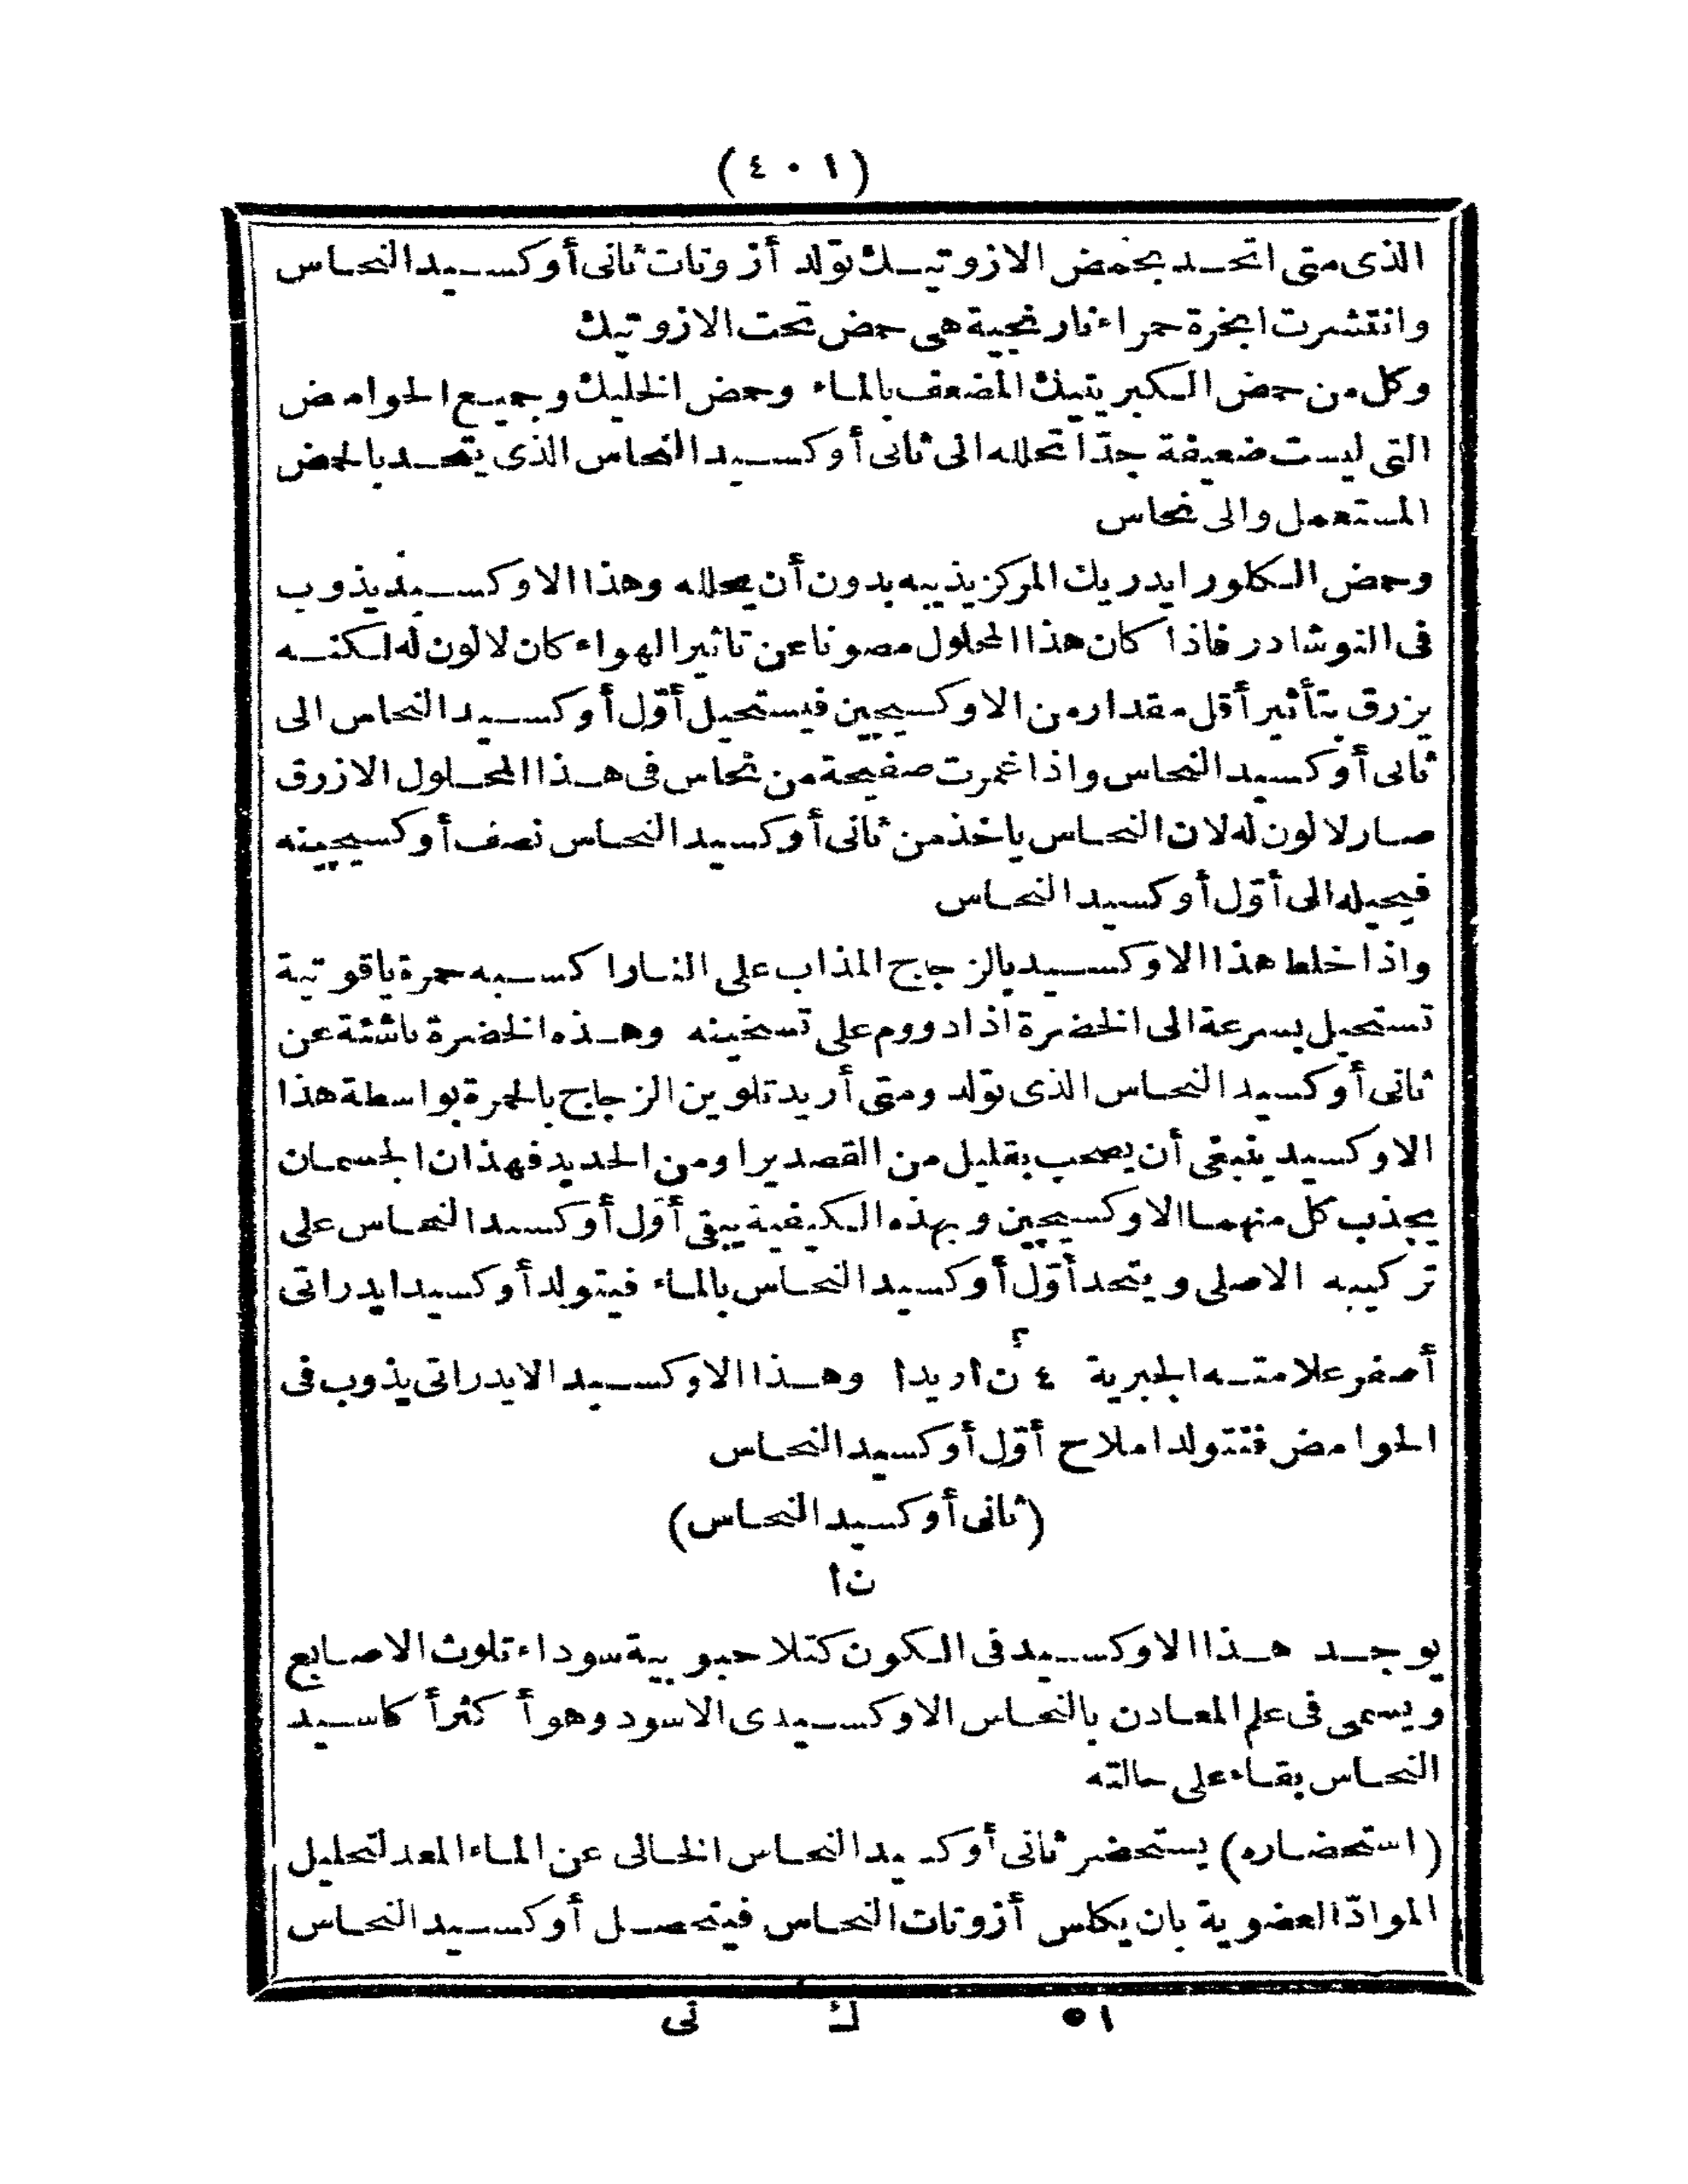 (٤٠١)
الذى متى اتحد بحمض الازوتيك تولد أزوتات ثانى أوكسيد النحاس
وانتشرت ابخرة حمراء نارنجية هى حمض تحت الازوتيك
وكل من حمض الكبريتيك المضعف بالماء وحمض الخليك وجميع الحوامض
التى ليست ضعيفة جدّا تحلله الى ثانى أوكسيد النحاس الذى يتحد بالحمض
المستعمل والى نحاس
وحمض الكلورايدريك المركز يذيبه بدون أن يحلله وهذا الاوكسيد يذوب
فى النوشادر فاذا كان هذا المحلول مصونا عن تاثير الهواء كان لا لون له لكنه
يزرق بتأثير أقل مقدار من الاوكسيجين فيستحيل أوّل أوكسيد النحاس الى
ثانى أوكسيد النحاس واذا غمرت صفيحة من نحاس فى هذا المحلول الازرق
صار لا لون له لان النحاس ياخذ من ثانى أوكسيد النحاس نصف أوكسيجينه
فيحيله الى أوّل أوكسيد النحاس
واذا خلط هذا الاوكسيد بالزجاج المذاب على النار اكسبه حمرة ياقوتية
تستحيل بسرعة الى الخضرة اذا دووم على تسخينه وهذه الخضرة ناشئة عن
ثانى أوكسيد النحاس الذى تولد ومتى أريد تلوين الزجاج بالحمرة بواسطة هذا
الاوكسيد ينبغى أن يصحب بقليل من القصدير او من الحديد فهذان الجسمان
يجذب كل منهما الاوكسيجين وبهذه الكيفية يبقى أوّل أوكسيد النحاس على
تركيبه الاصلى ويتحد أوّل أوكسيد النحاس بالماء فيتولد أوكسيد ايدراتى
أصفر علامته الجبرية ٤ ن٢ا ر يدا وهذا الاوكسيد الايدراتى يذوب فى
الحوامض فتتولد املاح أوّل أوكسيد النحاس
(ثانى أوكسيد النحاس)
ن ا
يوجد هذا الاوكسيد فى الكون كتلا حبوبية سوداء تلوث الاصابع
ويسمى فى علم المعادن بالنحاس الاوكسيدى الاسود وهو أكثر أكاسيد
النحاس بقاء على حالته
(استحضاره) يستحضر ثانى أوكسيد النحاس الخالى عن الماء المعد لتحليل
الموادّ العضوية بان يكلس أزوتات النحاس فيتحصل أوكسيد النحاس
٥١ ك نى